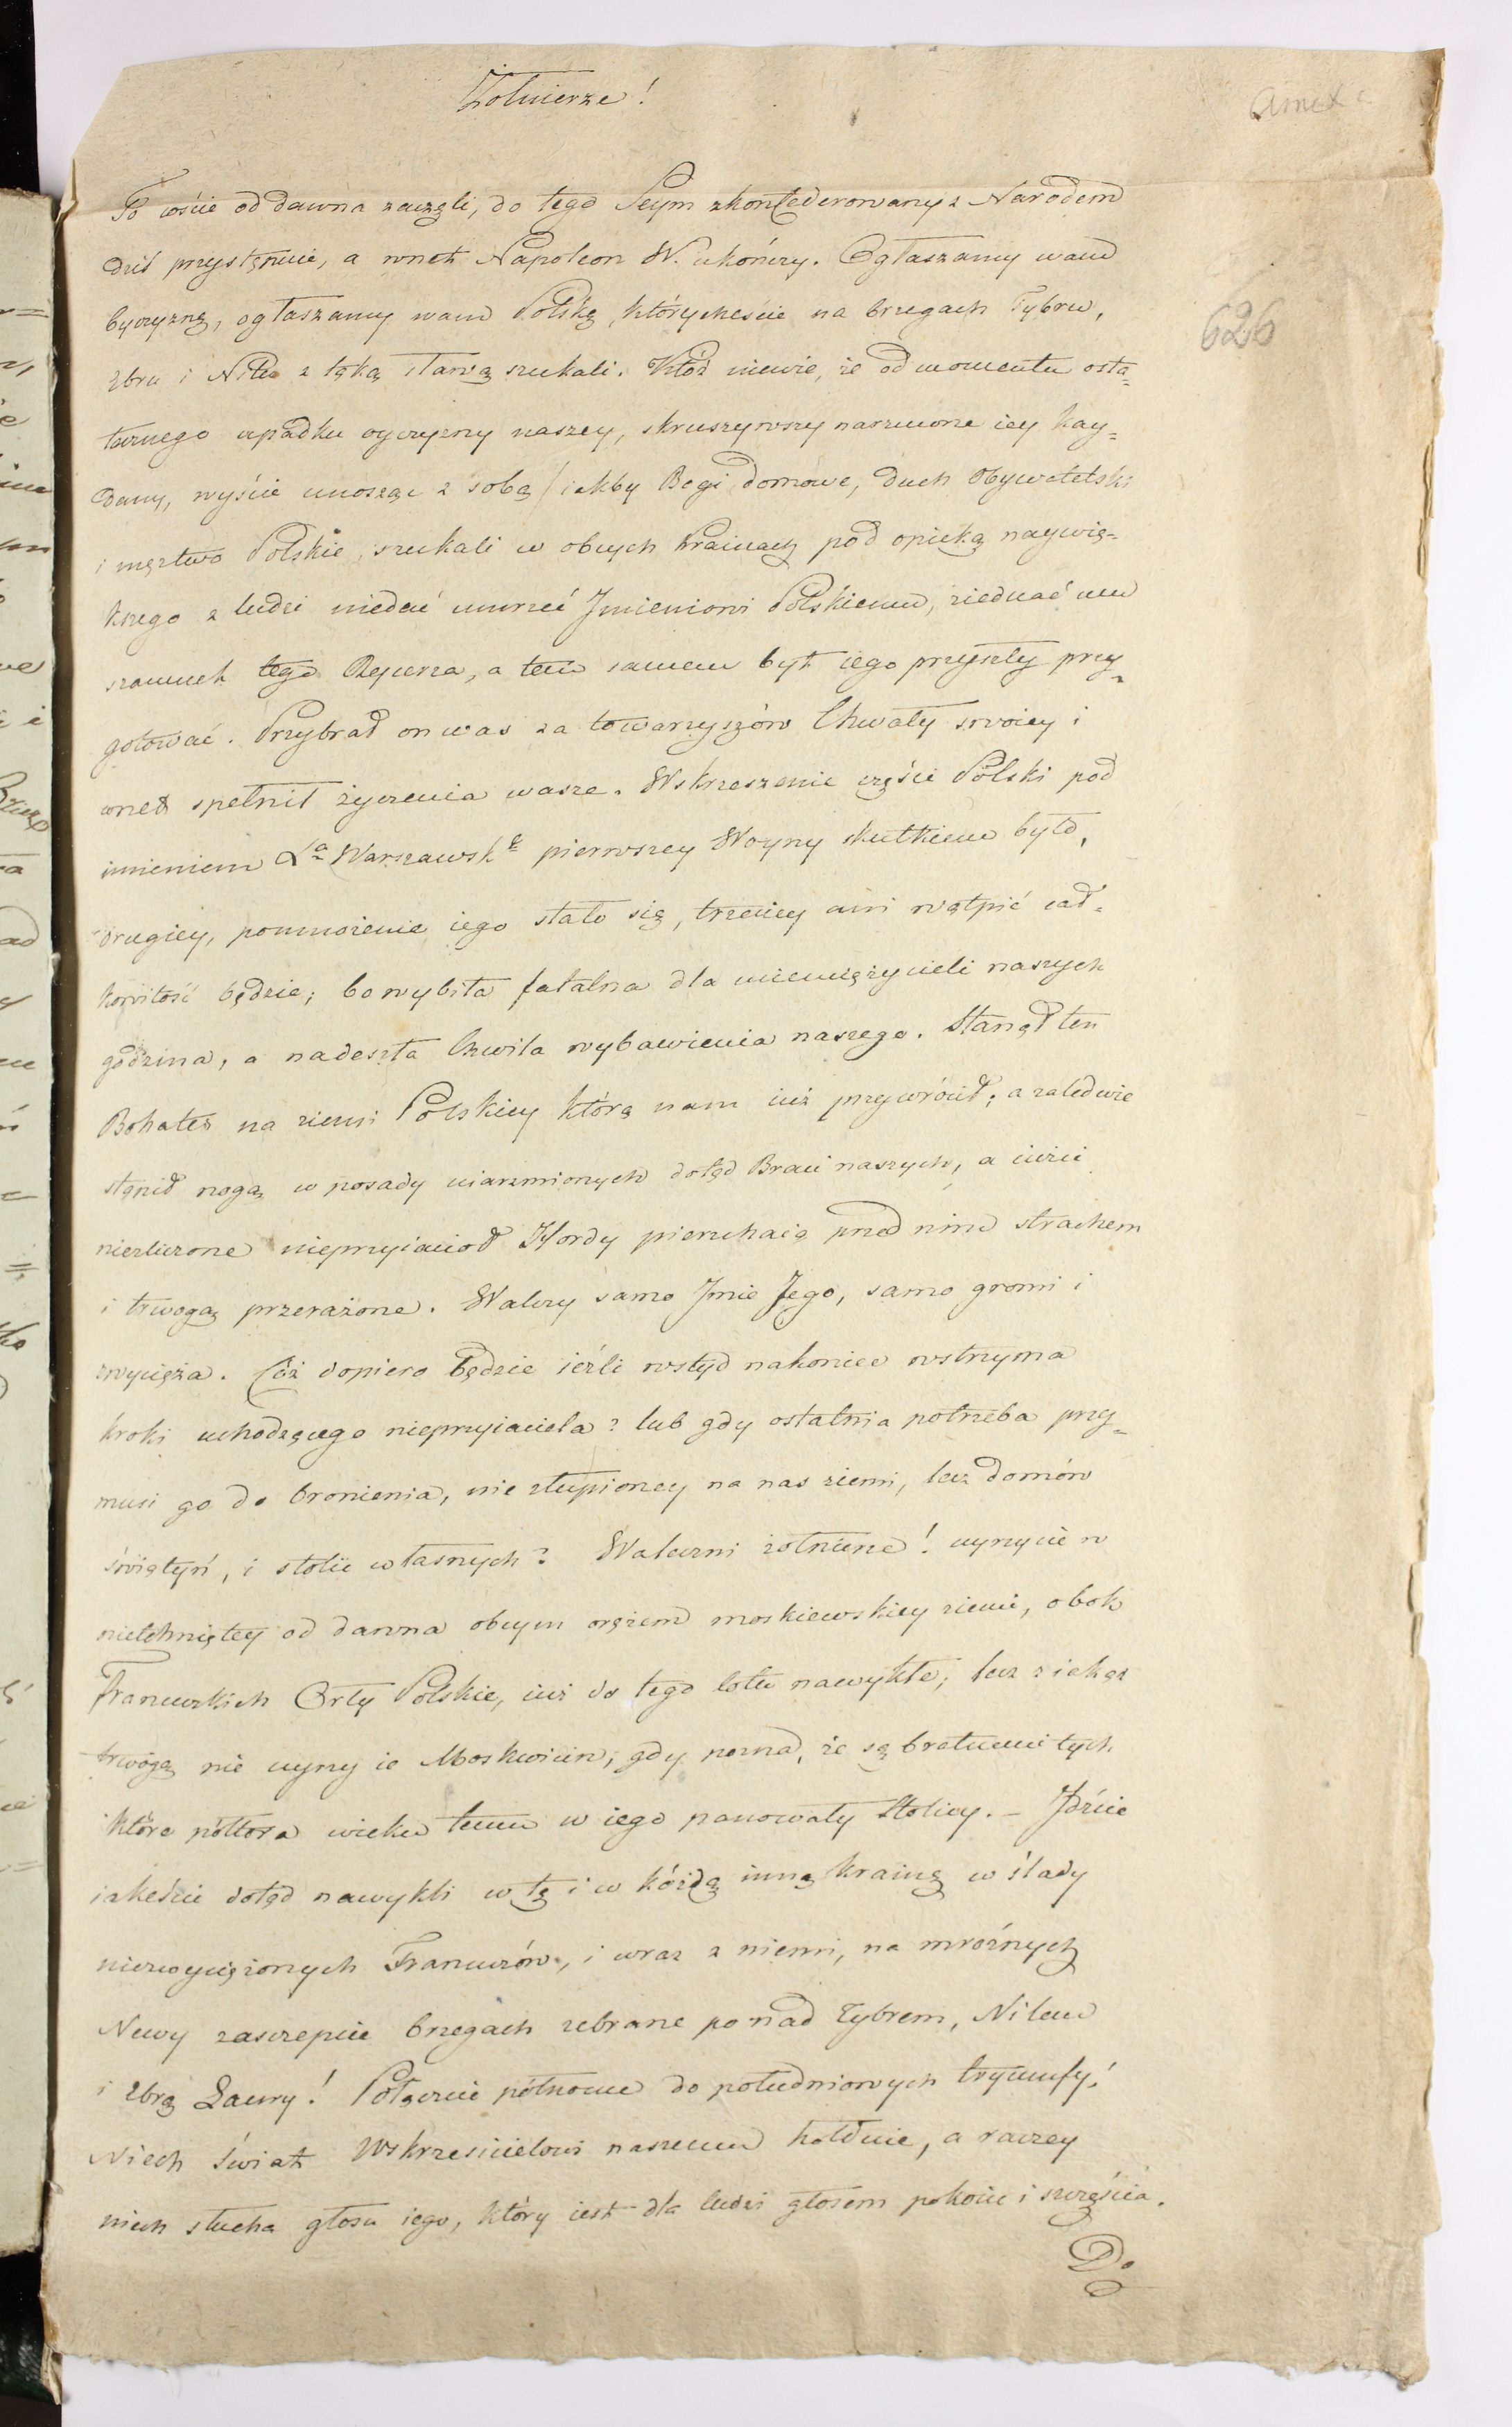 Żołnierze!
annexe
626
To coście od dawna zaczęli, do tego Seym zkonfederowany z Narodem
dziś przystępuie, a wnet Napoleon W. ukończy. Ogłaszamy wam
oyczyznę, ogłaszamy wam Polskę, którycheście na brzegach Tybru,
Ebru i Nilu z tąką sławą szukali. Któż niewie, że od momentu osta=
tecznego upadku oyczyzny naszey, skruszywszy narzucone iey kay=
dany, wyście unosząc z sobą jakby Bogi domowe, duch Obywatelski
i męztwo Polskie, szukali w obcych krainach pod opieką naywię=
kszego z ludzi niedać umrzeć Jmieniowi Polskiemu, ziednać mu
szacunek tego Rycerza, a tem samem byt iego przyszły przy=
gotować. Przybrał on was za towarzyszów Chwały swoiey i
wnet spełnił życzenia wasze. Wskrzeszenie części Polski pod
imieniem Xa Warszawskg pierwszey Woyny skutkiem było,
drugiey, pomnożenie iego stało się, trzeciey ani wątpić cał=
kowitość będzie; bo wybiła fatalna dla ciemiężycieli naszych
godzina, a nadeszła Chwila wybawienia naszego. Stanął ten
Bohater na ziemi Polskiey którą nam iuż przywrócił; a zaledwie
stąpił nogą w posady uiarzmionych dotąd Braci naszych, a iużci
niezliczone nieprzyiaciół Hordy pierzchaią przed nim strachem
i trwogą przerażone. Walczy samo Jmie Jego, samo gromi i
zwycięża. Cóż dopiero będzie ieźli wstyd nakoniec wstrzyma
kroki uchodzącego nieprzyiaciela? lub gdy ostatnia potrzeba przy=
musi go do bronienia, nie złupioney na nas ziemi, lecz domów
świątyń, i stolic własnych? Waleczni żołnierze! uyrzycie w
nietchniętey od dawna obcym orężem moskiewskiey ziemi, obok
Francuzkich Orły Polskie, iuż do tego lotu nawykłe; lecz z iakąż
trwogą nie uyrzy ie Moskwicin; gdy pozna, że są bratniemi tych
które półtora wieku temu w iego panowały Stolicy. – Jdźcie
iakeście dotąd nawykli w tę i w kóżdą inną krainę w ślady
niezwyciężonych Francuzów, i wraz z niemi, na mroźnych
Newy zaszczepcie brzegach zebrane ponad Tybrem, Nilem
i Ebrą Laury! Połączcie północne do południowych tryumfy!
Niech świat Wskrzesicielowi naszemu hołduie, a raczey
niech słucha głosu iego, który iest dla ludzi głosem pokoiu i szczęścia.
Do